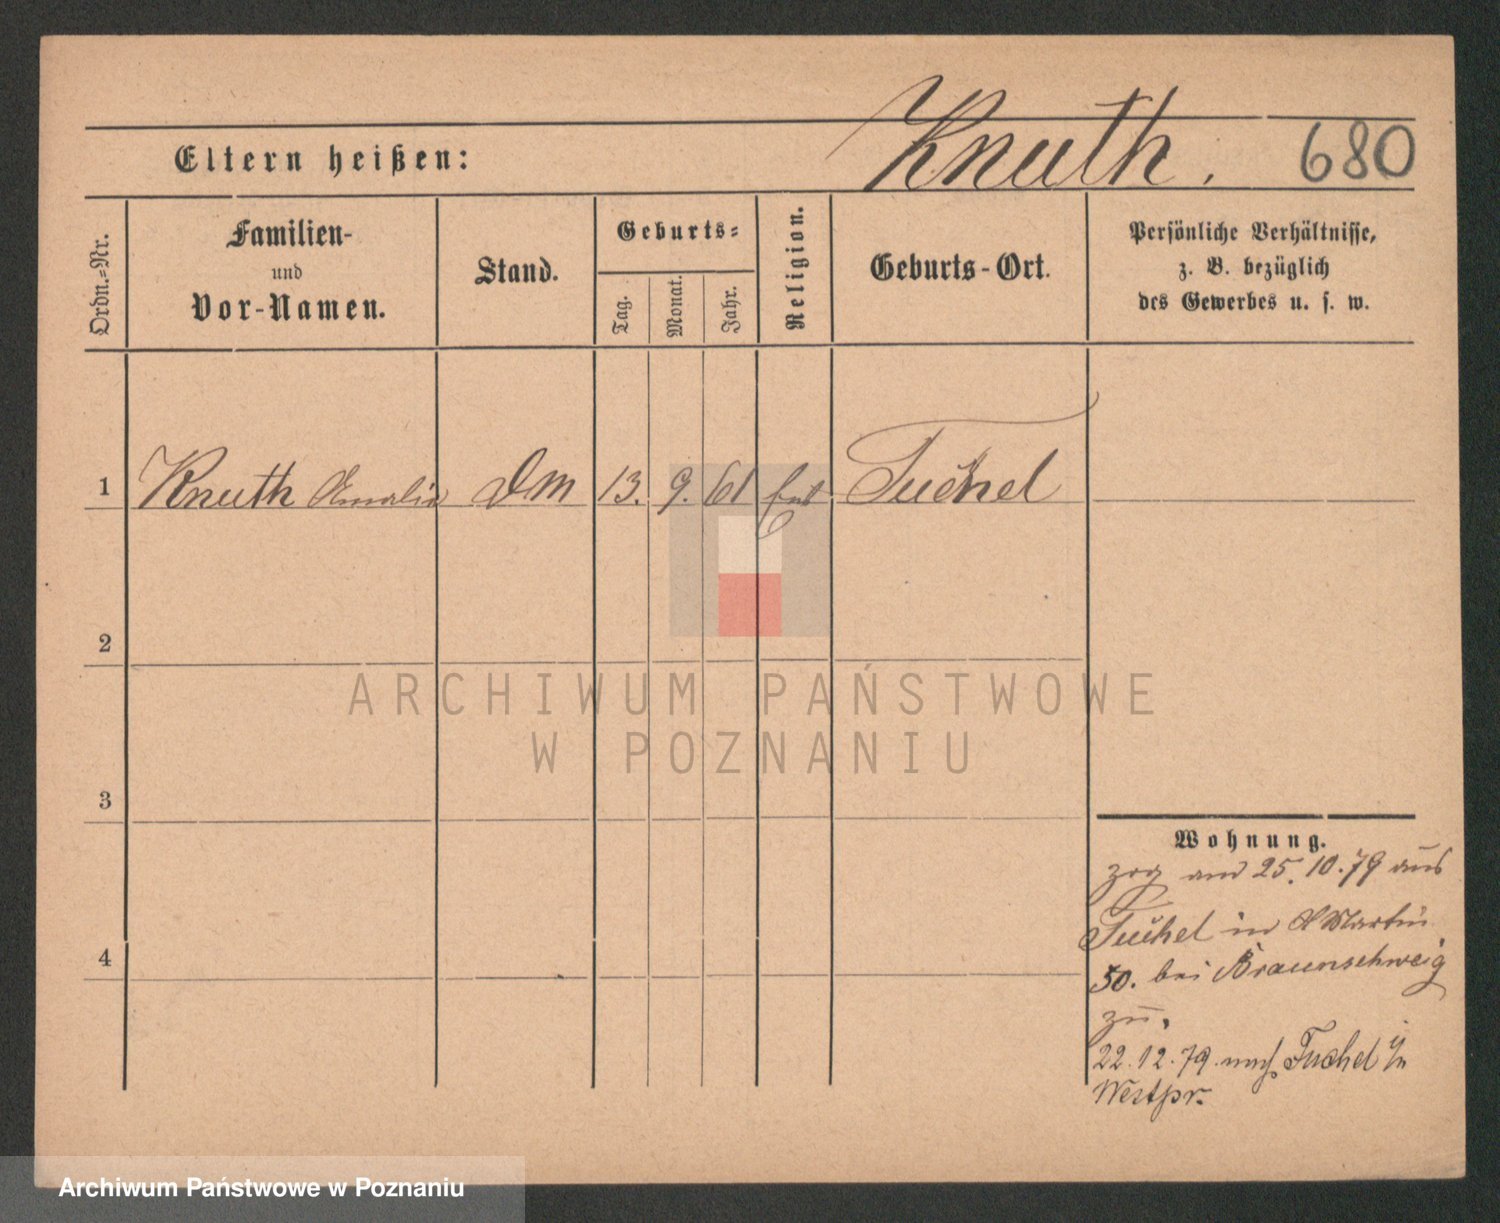 Knuth. 680
Eltern heißen:
Ordn.-Nr.
Familien-
und
Vor-Namen.
Stand.
Geburts-
Tag.
Monat.
Jahr.
Religion.
Geburts-Ort.
Persönliche Verhältnisse,
z. B. bezüglich
des Gewerbes u. s. w.
1 Knuth Amalie DM 13. 9. 61 Tuchel
2
3
4
Wohnung.
zog am 25. 10. 79 aus
Tuchel in St Martin
50. bei Braunschweig
zu.
22. 12. 79 nach Tuchel i/n
Westpr.
ARCHIWUM PAŃSTWOWE
W POZNANIU
Archiwum Państwowe w Poznaniu